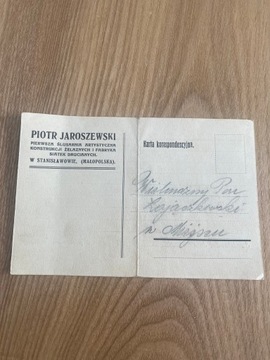 PIOTR JAROSZEWSKI
PIERWSZA ŚLUSARNIA ARTYSTYCZNA
KONSTRUKCJI ŻELAZNYCH I FABRYKA
SIATEK DRUCIANYCH.
W STANISŁAWOWIE, (MAŁOPOLSKA).
Karta korespondencyjna.
Wielmożny Pan
w Miejscu